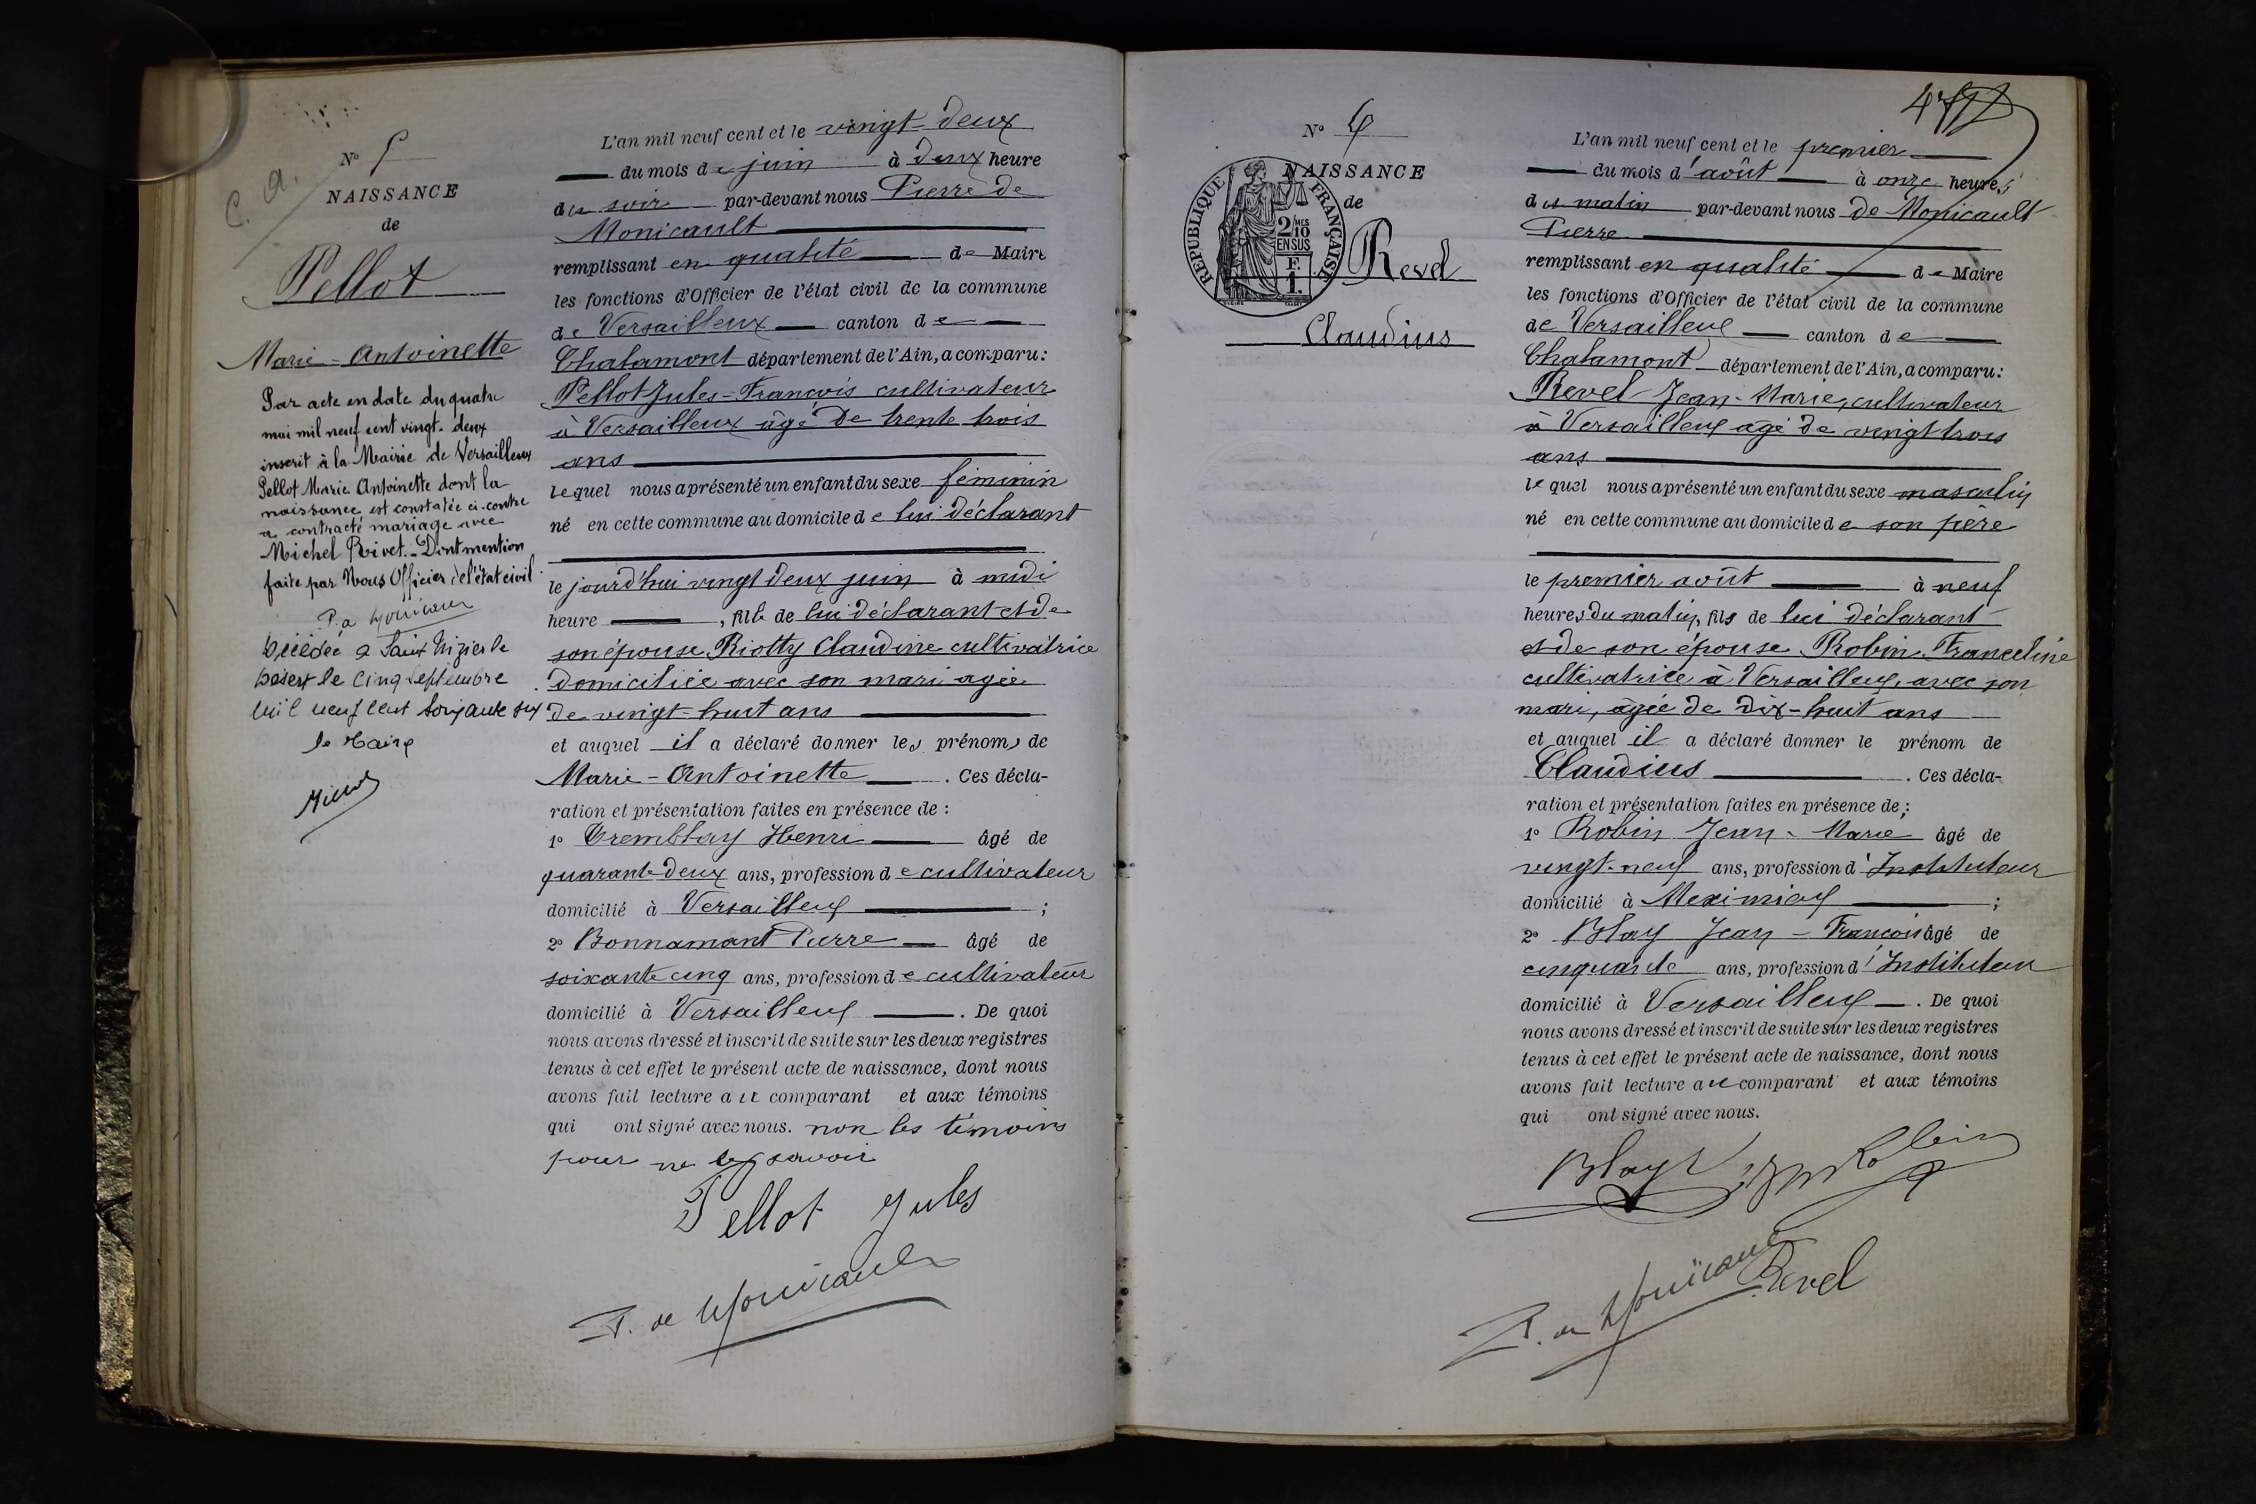 C. A.
N° 5
NAISSANCE
de
Pellot
Marie-Antoinette
Par acte en date du quatre
mai mil neuf cent vingt-deux
inscrit à la Mairie de Versailleux
Pellot Marie Antoinette dont la
naissance est constatée ci-contre
a contracté mariage avec
Michel Rivet. - Dont mention
faite par Nous Officier de l'état civil.
P. de Monicault
Décédée à Saint Nizier le
Désert le cinq septembre
mil neuf cent soixante six
le Maire
L'an mil neuf cent et le vingt-deux
du mois de juin à deux heure
du soir par-devant nous Pierre de
Monicault
remplissant en qualité de Maire
les fonctions d'Officier de l'état civil de la commune
de Versailleux canton de
Chalamont département de l'Ain, a comparu:
Pellot Jules-François cultivateur
à Versailleux âgé de trente trois
ans
lequel nous a présenté un enfant du sexe féminin
né en cette commune au domicile de lui déclarant
le jourd'hui vingt deux juin à midi
heure , fille de lui déclarant et de
son épouse Riotty Claudine cultivatrice
domiciliée avec son mari agée
de vingt-huit ans
et auquel il a déclaré donner les prénoms de
Marie-Antoinette . Ces décla-
ration et présentation faites en présence de :
1° Tremblay Henri âgé de
quarante-deux ans, profession de cultivateur
domicilié à Versailleux ;
2° Bonnamant Pierre âgé de
soixante cinq ans, profession de cultivateur
domicilié à Versailleux . De quoi
nous avons dressé et inscrit de suite sur les deux registres
tenus à cet effet le présent acte de naissance, dont nous
avons fait lecture au comparant et aux témoins
qui ont signé avec nous. non les témoins
pour ne le savoir
Pellot Jules
P. de Monicault
N° 6
NAISSANCE
de
RÉPUBLIQUE FRANÇAISE
2 MES
10
EN SUS
F.
1.
Revel
Claudius
L'an mil neuf cent et le premier
du mois d'août à onze heures
du matin par-devant nous de Monicault
Pierre
remplissant en qualité de Maire
les fonctions d'Officier de l'état civil de la commune
de Versailleux canton de
Chalamont département de l'Ain, a comparu:
Revel Jean-Marie, cultivateur
à Versailleux agé de vingt trois
ans
lequel nous a présenté un enfant du sexe masculin
né en cette commune au domicile de son père
le premier août à neuf
heures du matin, fils de lui déclarant
et de son épouse Robin Franceline
cultivatrice à Versailleux, avec son
mari, âgée de dix-huit ans
et auquel il a déclaré donner le prénom de
Claudius . Ces décla-
ration et présentation faites en présence de ;
1° Robin Jean-Marie âgé de
vingt-neuf ans, profession d'Instituteur
domicilié à Meximieux ;
2° Blay Jean-François âgé de
cinquante ans, profession d'Instituteur
domicilié à Versailleux . De quoi
nous avons dressé et inscrit de suite sur les deux registres
tenus à cet effet le présent acte de naissance, dont nous
avons fait lecture au comparant et aux témoins
qui ont signé avec nous.
Blay Robin
P. de Monicault Revel